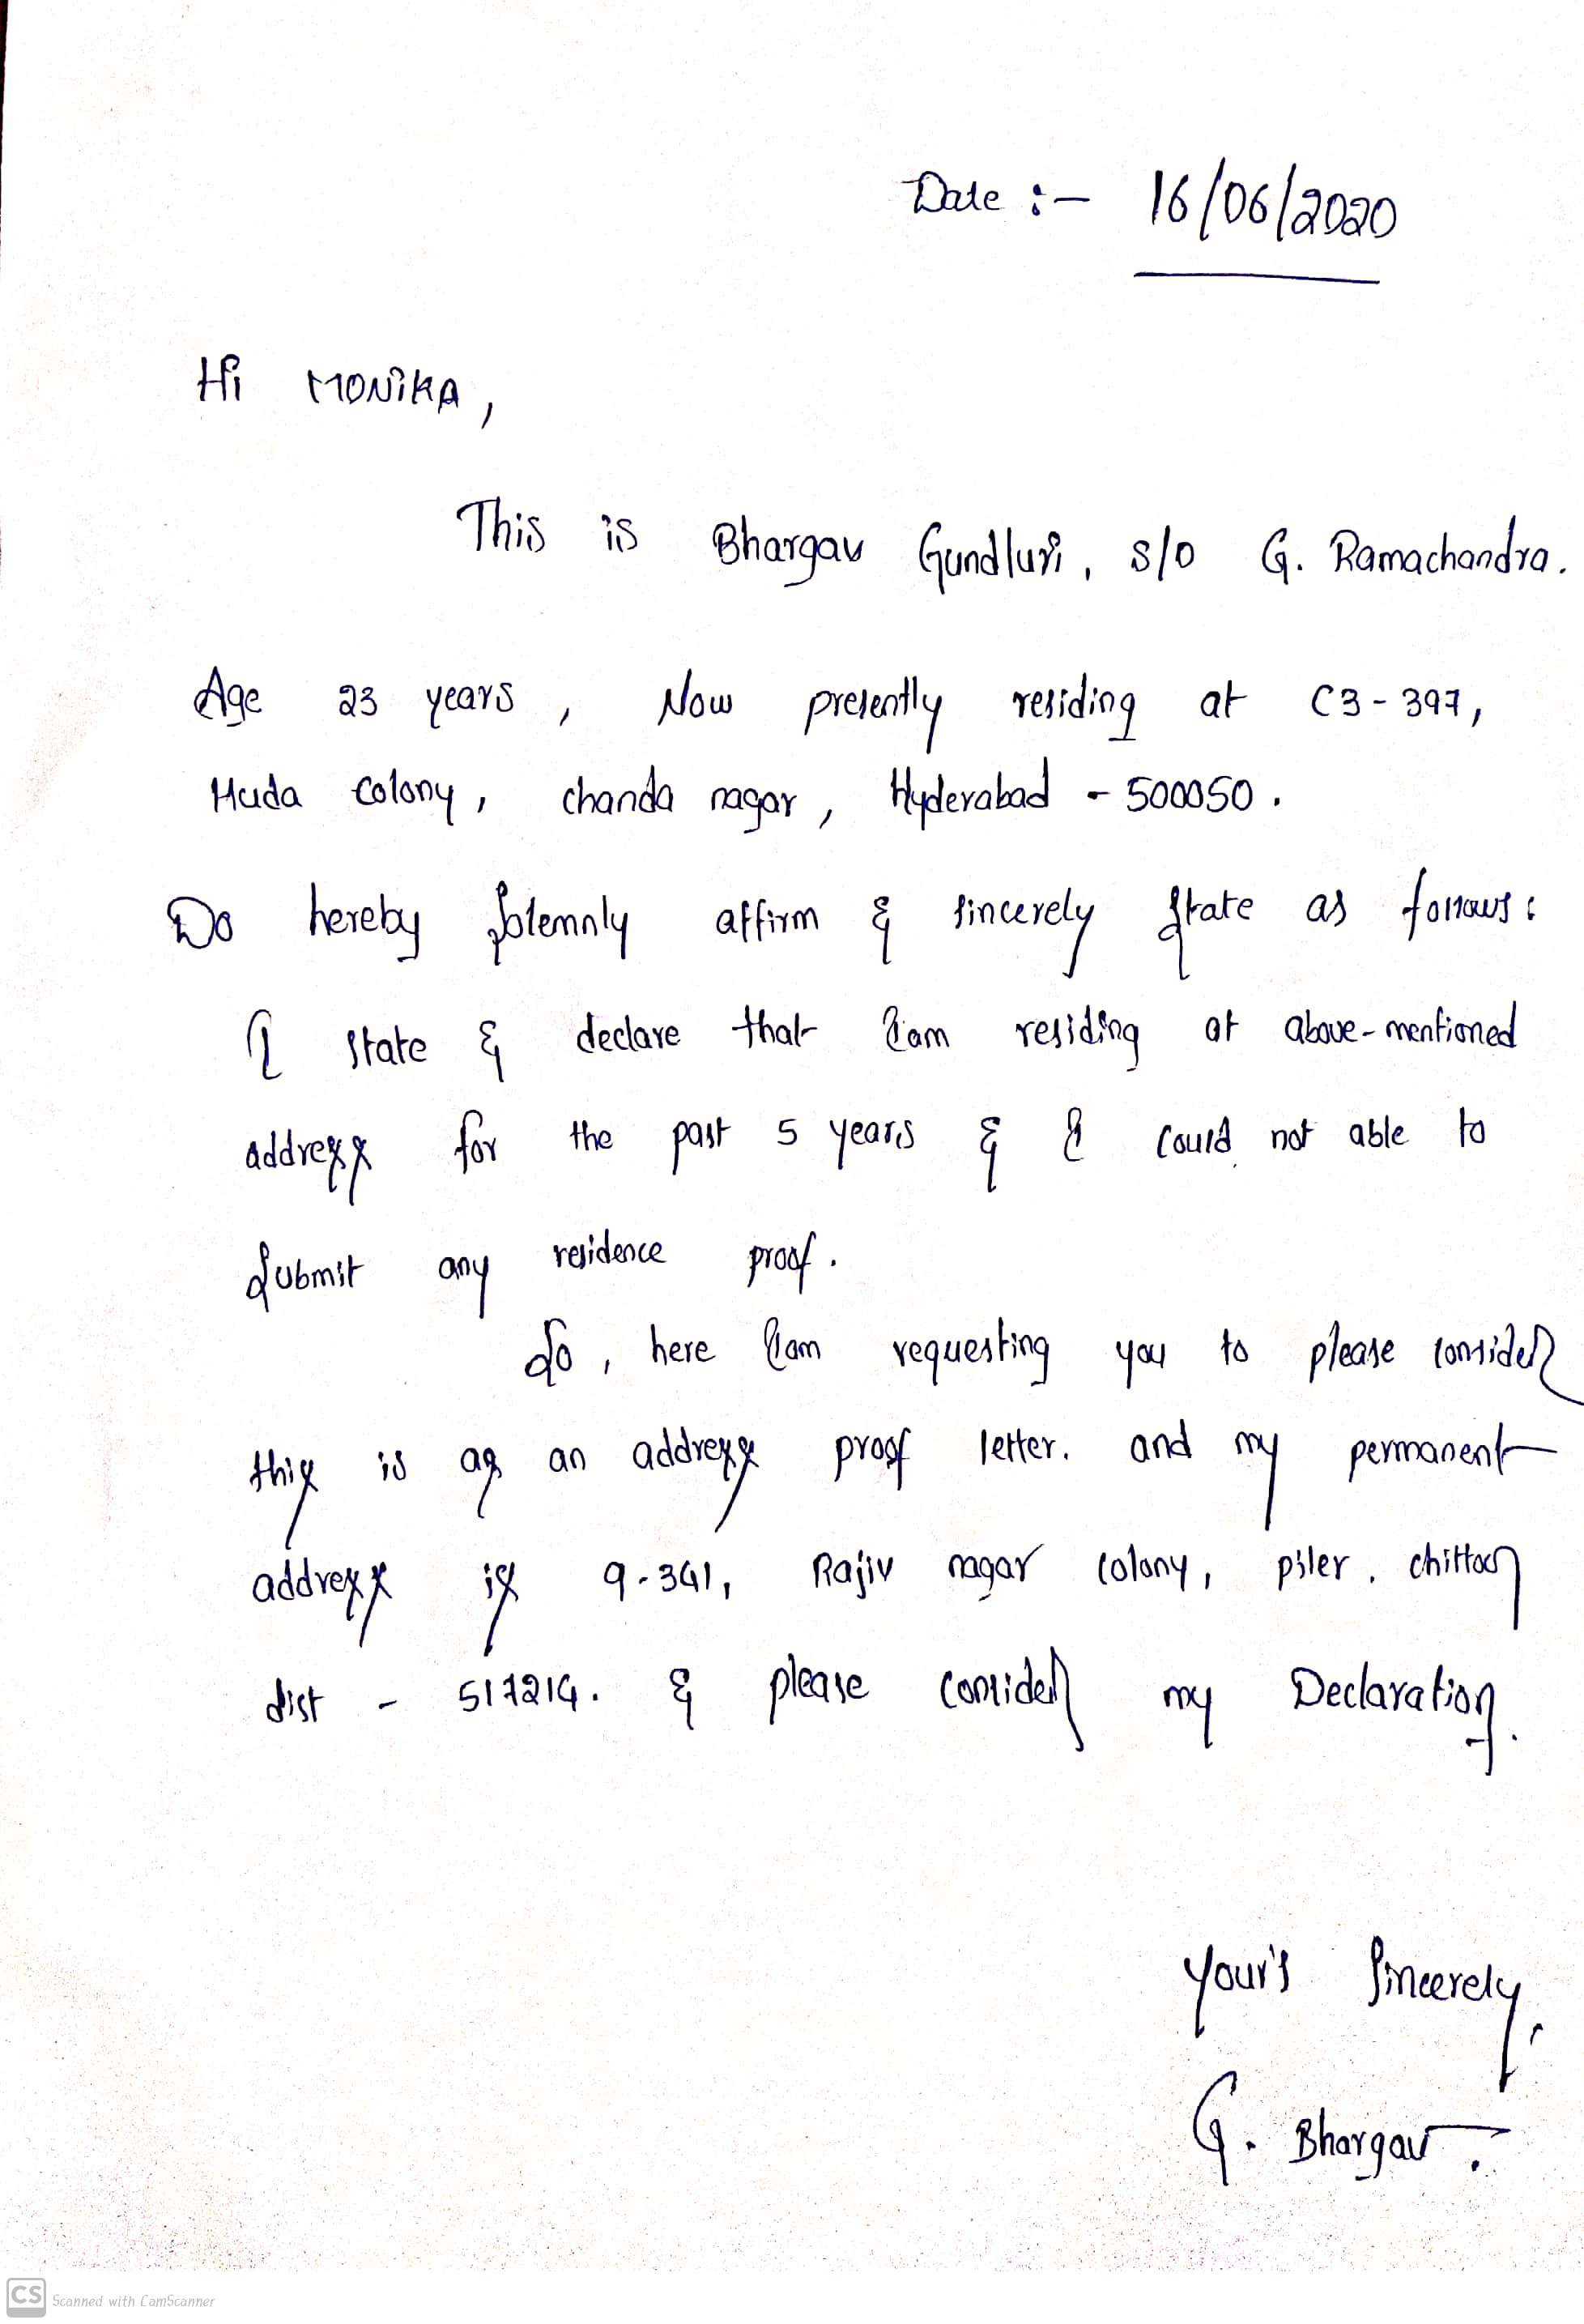 Date :- 16/06/2020
Hi MONiKA,
This is Bhargav Gundluri, s/o G. Ramachandra.
Age 23 years, Now presently residing at C3-397,
Huda colony, chanda nagar, Hyderabad - 500050.
Do hereby solemnly affirm & sincerely state as follows:
I state & declare that I am residing at above-mentioned
address for the past 5 years & I could not able to
submit any residence proof.
So, here I am requesting you to please consider
this is as an address proof letter. and my permanent
address is 9-341, Rajiv nagar colony, piler, chittoor
dist - 517214. & please consider my Declaration.
your's sincerely,
G. Bhargav.
CS Scanned with CamScanner